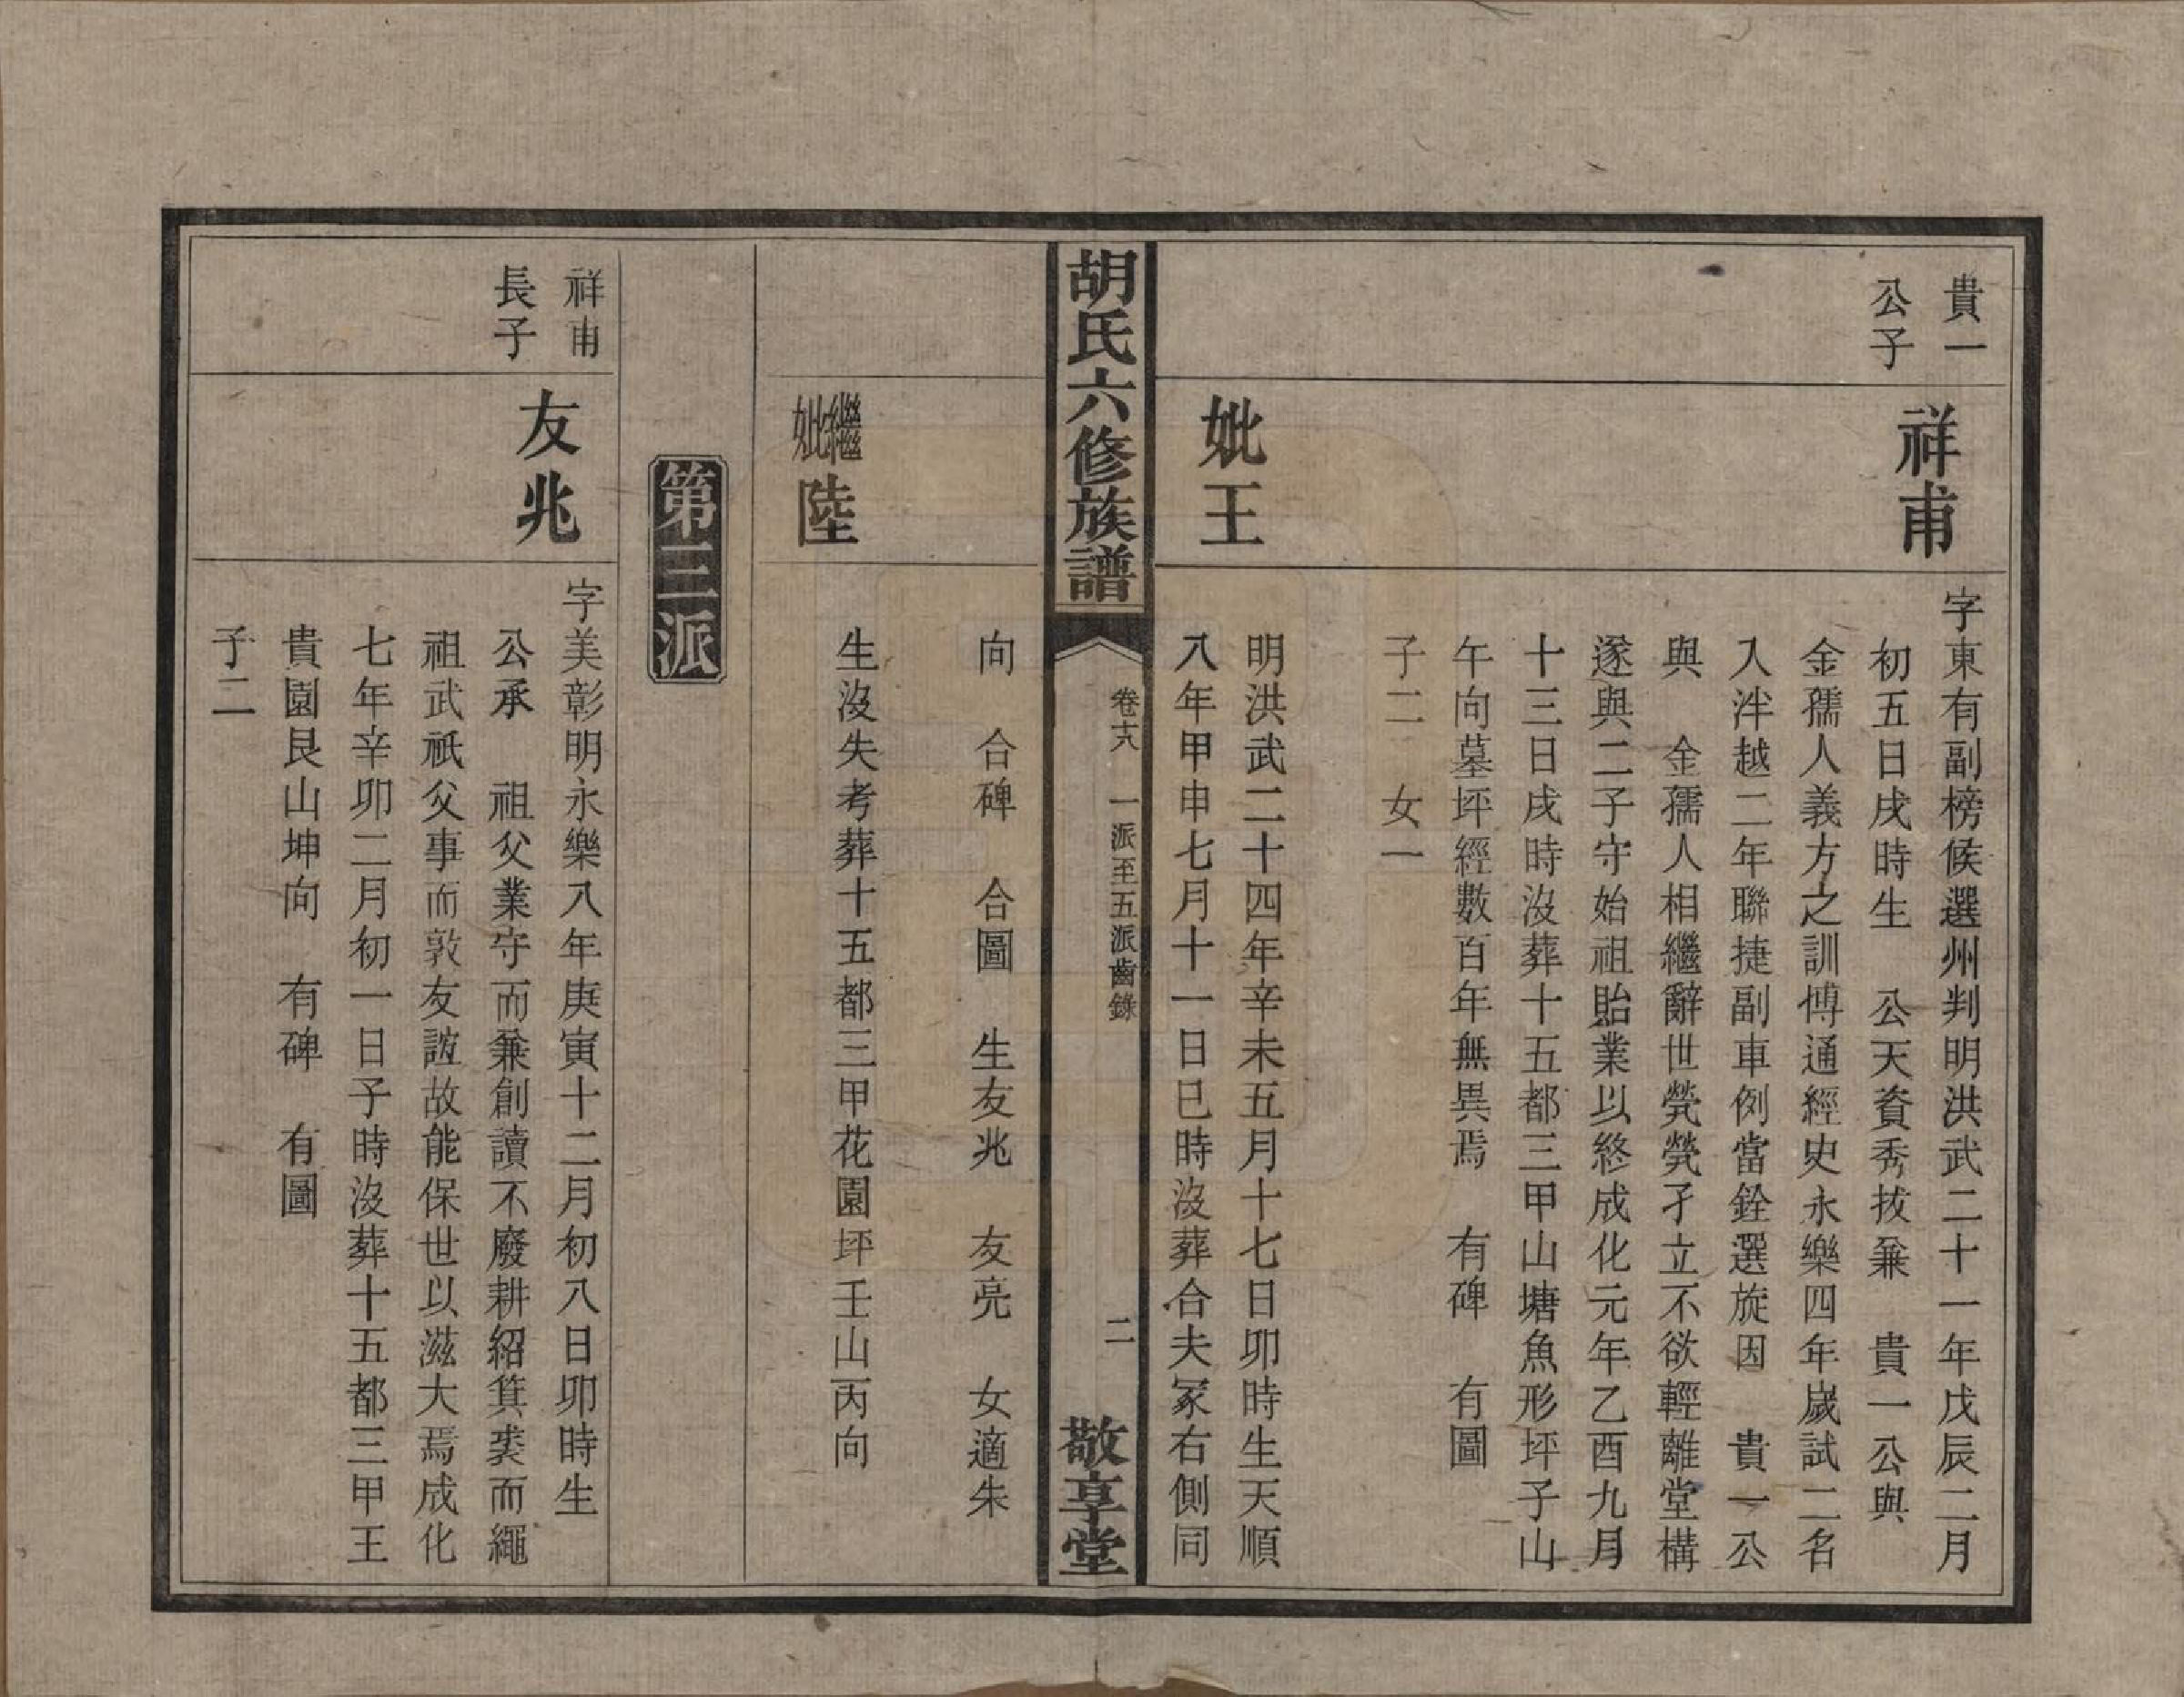 貴一
公子
祥甫
字東有副榜候選州判明洪武二十一年戊辰二月
初五日戌時生　公天資秀拔兼　貴一公與
金孺人義方之訓博通經史永樂四年歲試二名
入泮越二年聯捷副車例當銓選旋因　貴一公
與　金孺人相繼辭世煢煢孑立不欲輕離堂構
遂與二子守始祖貽業以終成化元年乙酉九月
十三日戌時沒葬十五都三甲山塘魚形坪子山
午向墓坪經數百年無異焉　有碑　有圖
子二　女一
妣王
明洪武二十四年辛未五月十七日卯時生天順
八年甲申七月十一日巳時沒葬合夫冢右側同
胡氏六修族譜
卷十八　一派至五派齒錄
二
敬享堂
向　合碑　合圖　生友兆　友亮　女適朱
繼妣陸
生沒失考葬十五都三甲花園坪壬山丙向
第三派
祥甫
長子
友兆
字美彰明永樂八年庚寅十二月初八日卯時生
公承　祖父業守而兼創讀不廢耕紹箕裘而繩
祖武祇父事而敦友誼故能保世以滋大焉成化
七年辛卯二月初一日子時沒葬十五都三甲王
貴園艮山坤向　有碑　有圖
子二